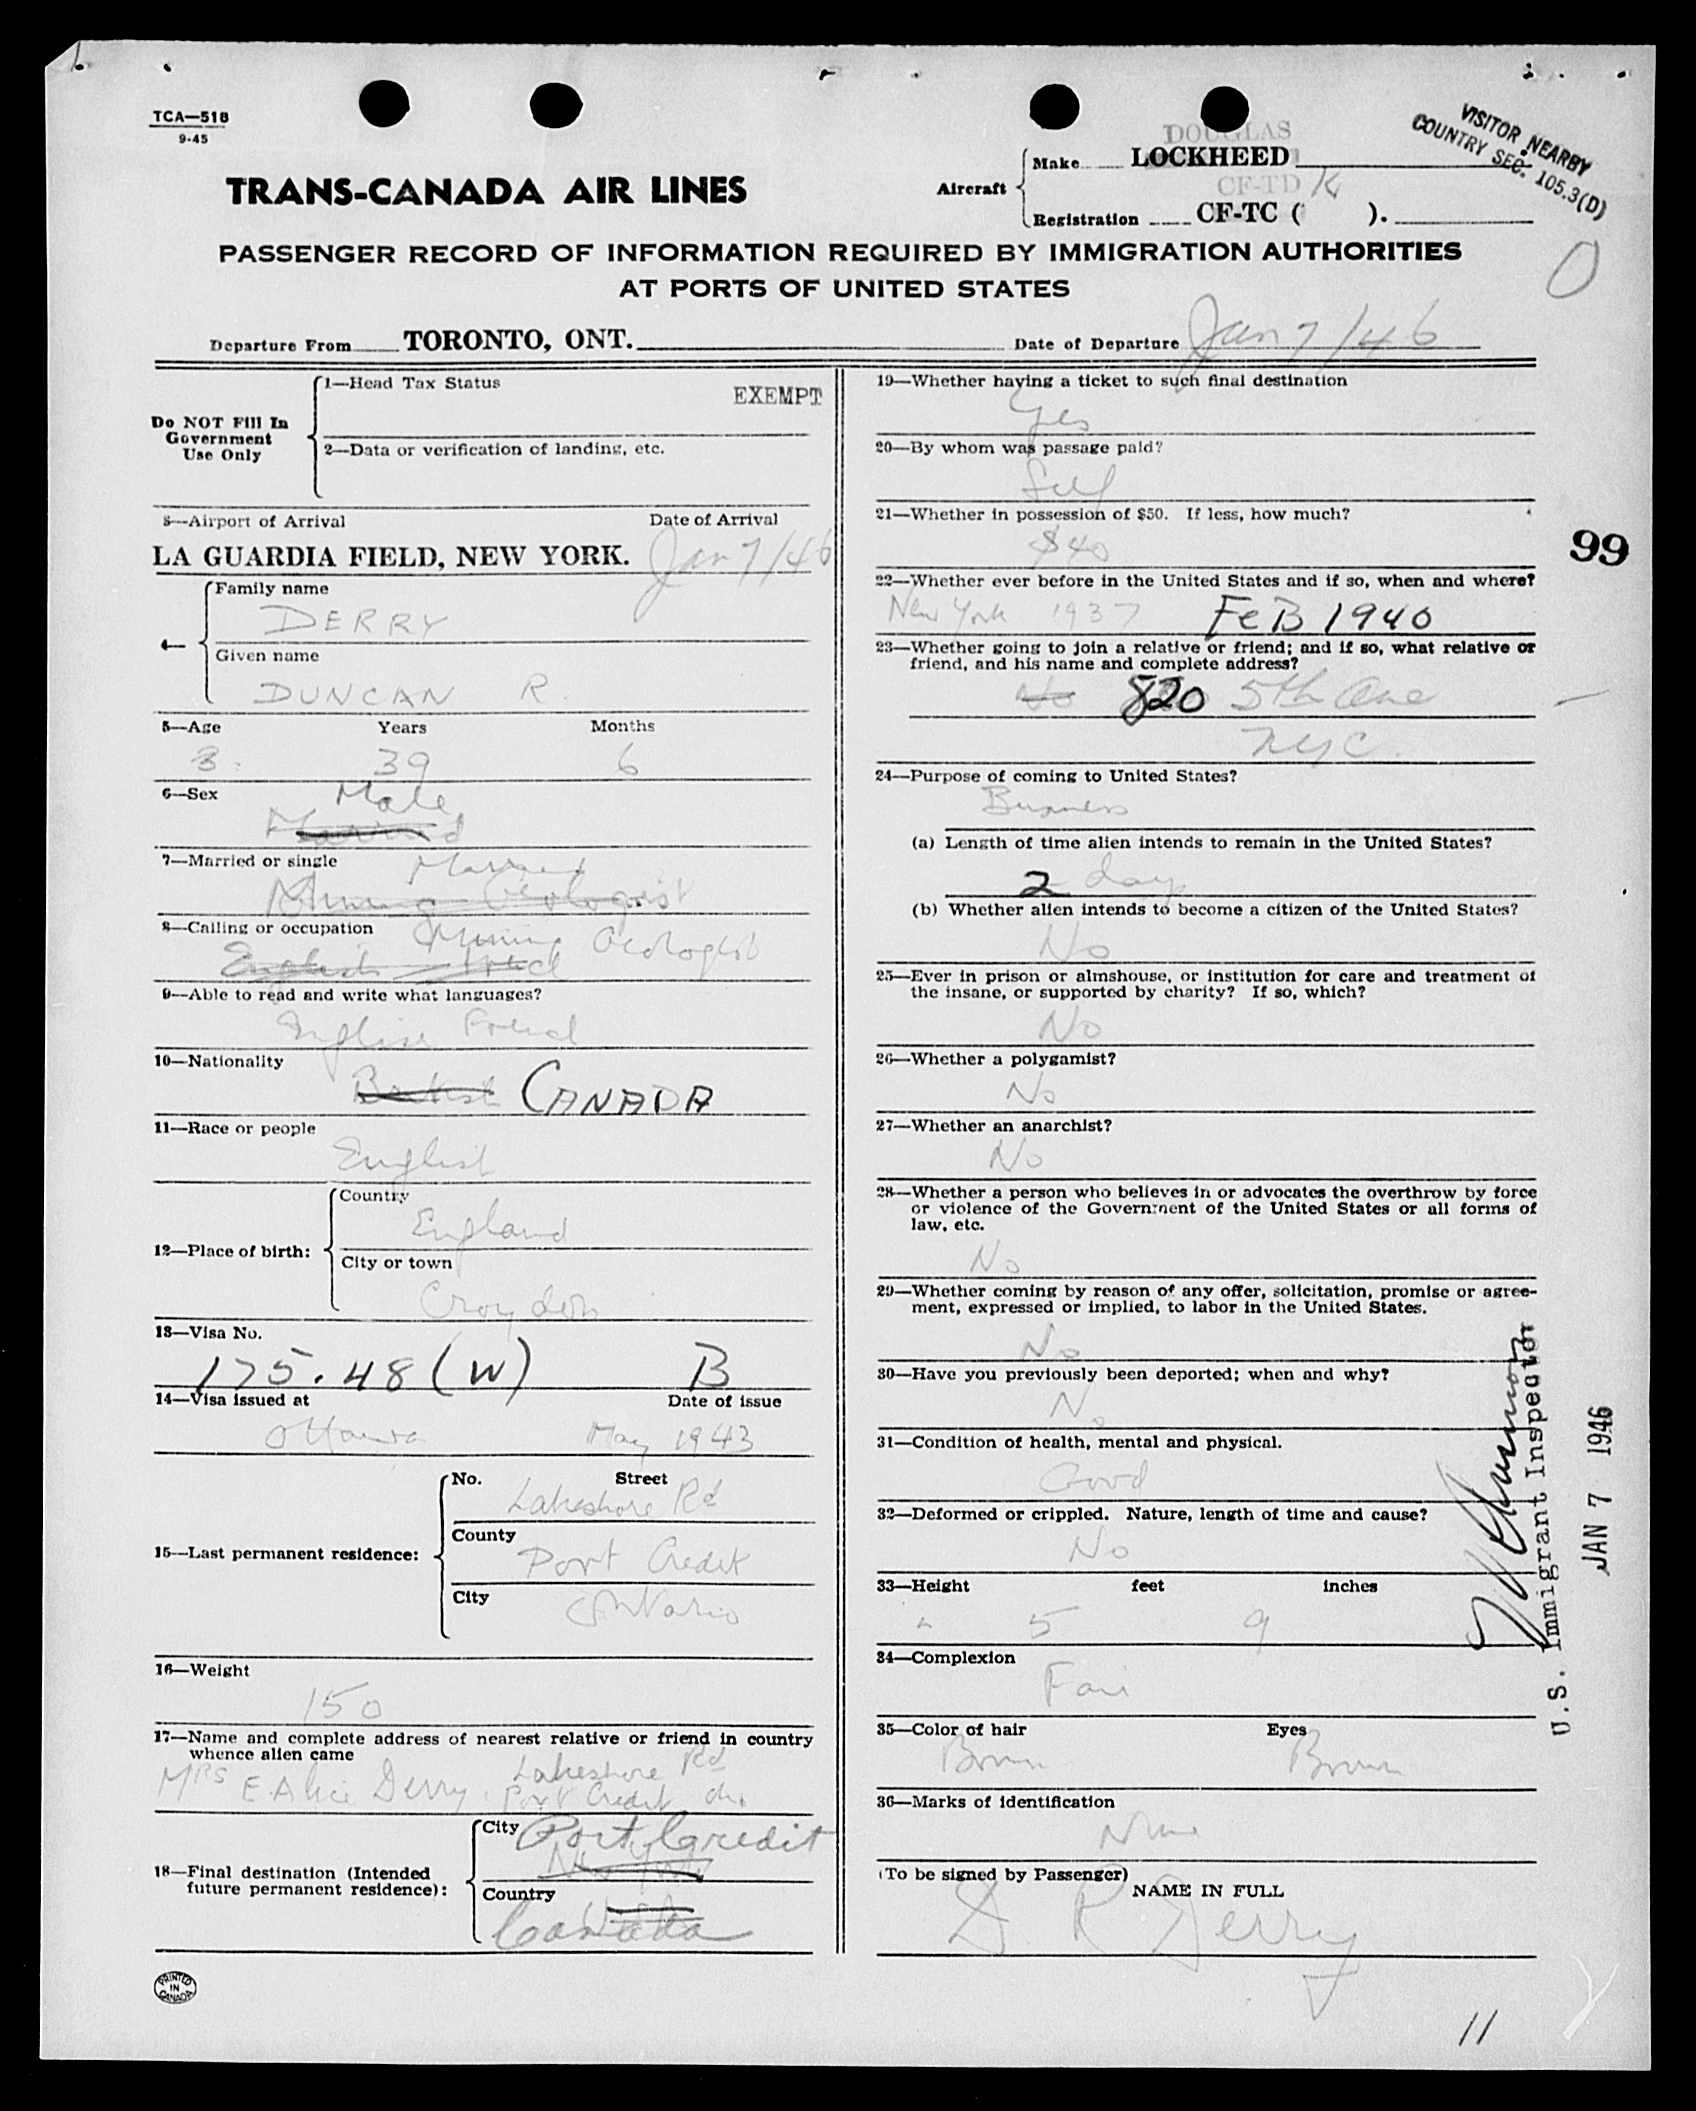 TCA—518
9-45
VISITOR NEARBY
COUNTRY SEC. 105.3(D)
DOUGLAS
Make LOCKHEED
TRANS-CANADA AIR LINES
Aircraft
CF-TD K
Registration CF-TC ( ).
PASSENGER RECORD OF INFORMATION REQUIRED BY IMMIGRATION AUTHORITIES
AT PORTS OF UNITED STATES
O
Departure From TORONTO, ONT. Date of Departure Jan 7/46
Do NOT Fill In
Government
Use Only
1—Head Tax Status
EXEMPT
2—Data or verification of landing, etc.
3—Airport of Arrival Date of Arrival
LA GUARDIA FIELD, NEW YORK. Jan 7/46
4— Family name
DERRY
Given name
DUNCAN R.
5—Age Years Months
3 39 6
6—Sex Male
Married
7—Married or single Married
Mining Geologist
8—Calling or occupation Mining Geologist
English
9—Able to read and write what languages?
English French
10—Nationality
British CANADA
11—Race or people
English
12—Place of birth:
Country
England
City or town
Croydon
13—Visa No.
175.48 (W) B
14—Visa issued at Date of issue
Ottawa May 1943
15—Last permanent residence:
No. Street
Lakeshore Rd
County
Port Credit
City
Ontario
16—Weight
150
17—Name and complete address of nearest relative or friend in country
whence alien came
Mrs E. Alice Derry. Lakeshore Rd
Port Credit
18—Final destination (Intended
future permanent residence):
City Port Credit
New York
Country
Canada
PRINTED
IN
CANADA
19—Whether having a ticket to such final destination
Yes
20—By whom was passage paid?
Self
21—Whether in possession of $50. If less, how much?
$40
22—Whether ever before in the United States and if so, when and where?
New York 1937 FeB 1940
23—Whether going to join a relative or friend; and if so, what relative or
friend, and his name and complete address?
No 820 5th Ave
NYC.
24—Purpose of coming to United States?
Business
(a) Length of time alien intends to remain in the United States?
2 days
(b) Whether alien intends to become a citizen of the United States?
No
25—Ever in prison or almshouse, or institution for care and treatment of
the insane, or supported by charity? If so, which?
No
26—Whether a polygamist?
No
27—Whether an anarchist?
No
28—Whether a person who believes in or advocates the overthrow by force
or violence of the Government of the United States or all forms of
law, etc.
No
29—Whether coming by reason of any offer, solicitation, promise or agree-
ment, expressed or implied, to labor in the United States.
No
30—Have you previously been deported; when and why?
No
31—Condition of health, mental and physical.
Good
32—Deformed or crippled. Nature, length of time and cause?
No
33—Height feet inches
5 9
34—Complexion
Fair
35—Color of hair Eyes
Brown Brown
36—Marks of identification
None
(To be signed by Passenger)
NAME IN FULL
D. R. Derry
99
U.S. Immigrant Inspector
JAN 7 1946
11